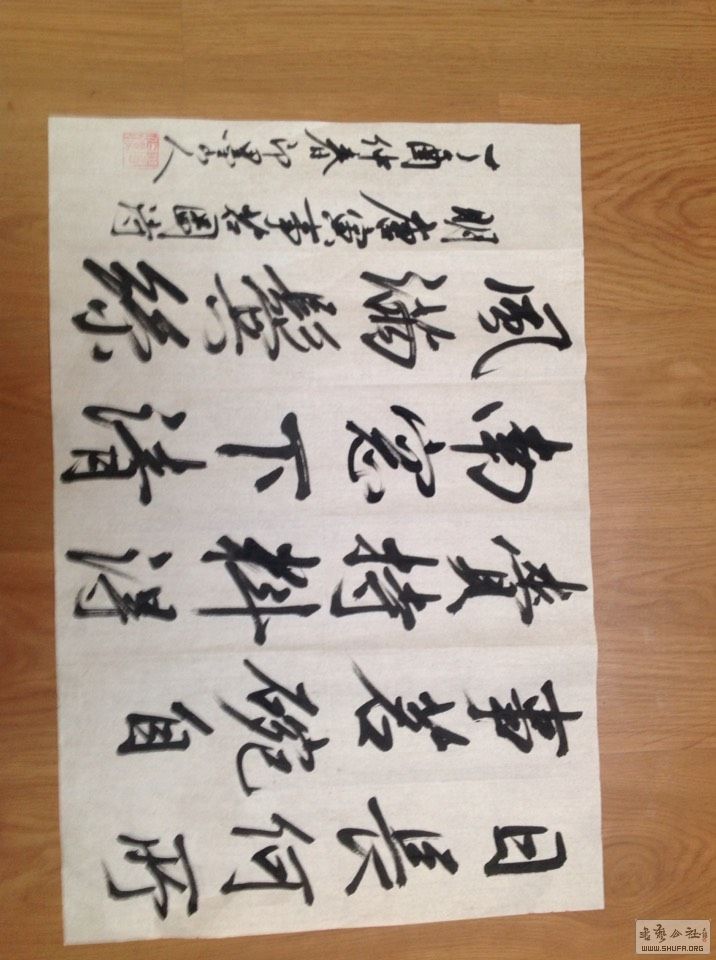 日長何所
事茗碗自
賫持料得
南窗下清
風滿鬢絲
明唐寅事茗圖詩
丁酉仲春墨山人
书艺公社
WWW.SHUFA.ORG